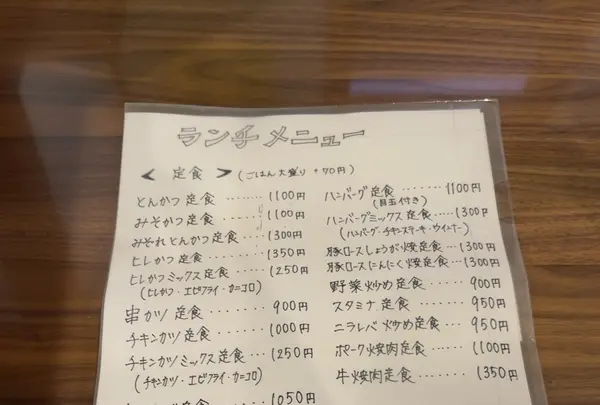 ランチメニュー
< 定食 > (ごはん大盛り +70円)
とんかつ定食 ‥‥‥‥ 1100円
みそかつ定食 ‥‥‥ 1100円
みぞれとんかつ定食 ‥‥ 1300円
ヒレかつ定食 ‥‥‥‥ 1350円
ヒレかつミックス定食 ‥‥ 1250円
(ヒレかつ・エビフライ・カニコロ)
串カツ定食 ‥‥‥‥ 900円
チキンカツ定食 ‥‥‥ 1000円
チキンカツミックス定食 ‥‥ 1250円
(チキンカツ・エビフライ・カニコロ)
定食 ‥‥ 1050円
ハンバーグ定食 ‥‥‥‥ 1100円
(目玉付き)
ハンバーグミックス定食 ‥‥ 1300円
(ハンバーグ・チキンステーキ・ウィンナー)
豚ロースしょうが焼定食 ‥‥ 1300円
豚ロースにんにく焼定食 ‥‥ 1300円
野菜炒め定食 ‥‥‥ 900円
スタミナ定食 ‥‥‥ 950円
ニラレバ炒め定食 ‥‥ 950円
ポーク焼肉定食 ‥‥‥ 1100円
牛焼肉定食 ‥‥‥‥ 1350円